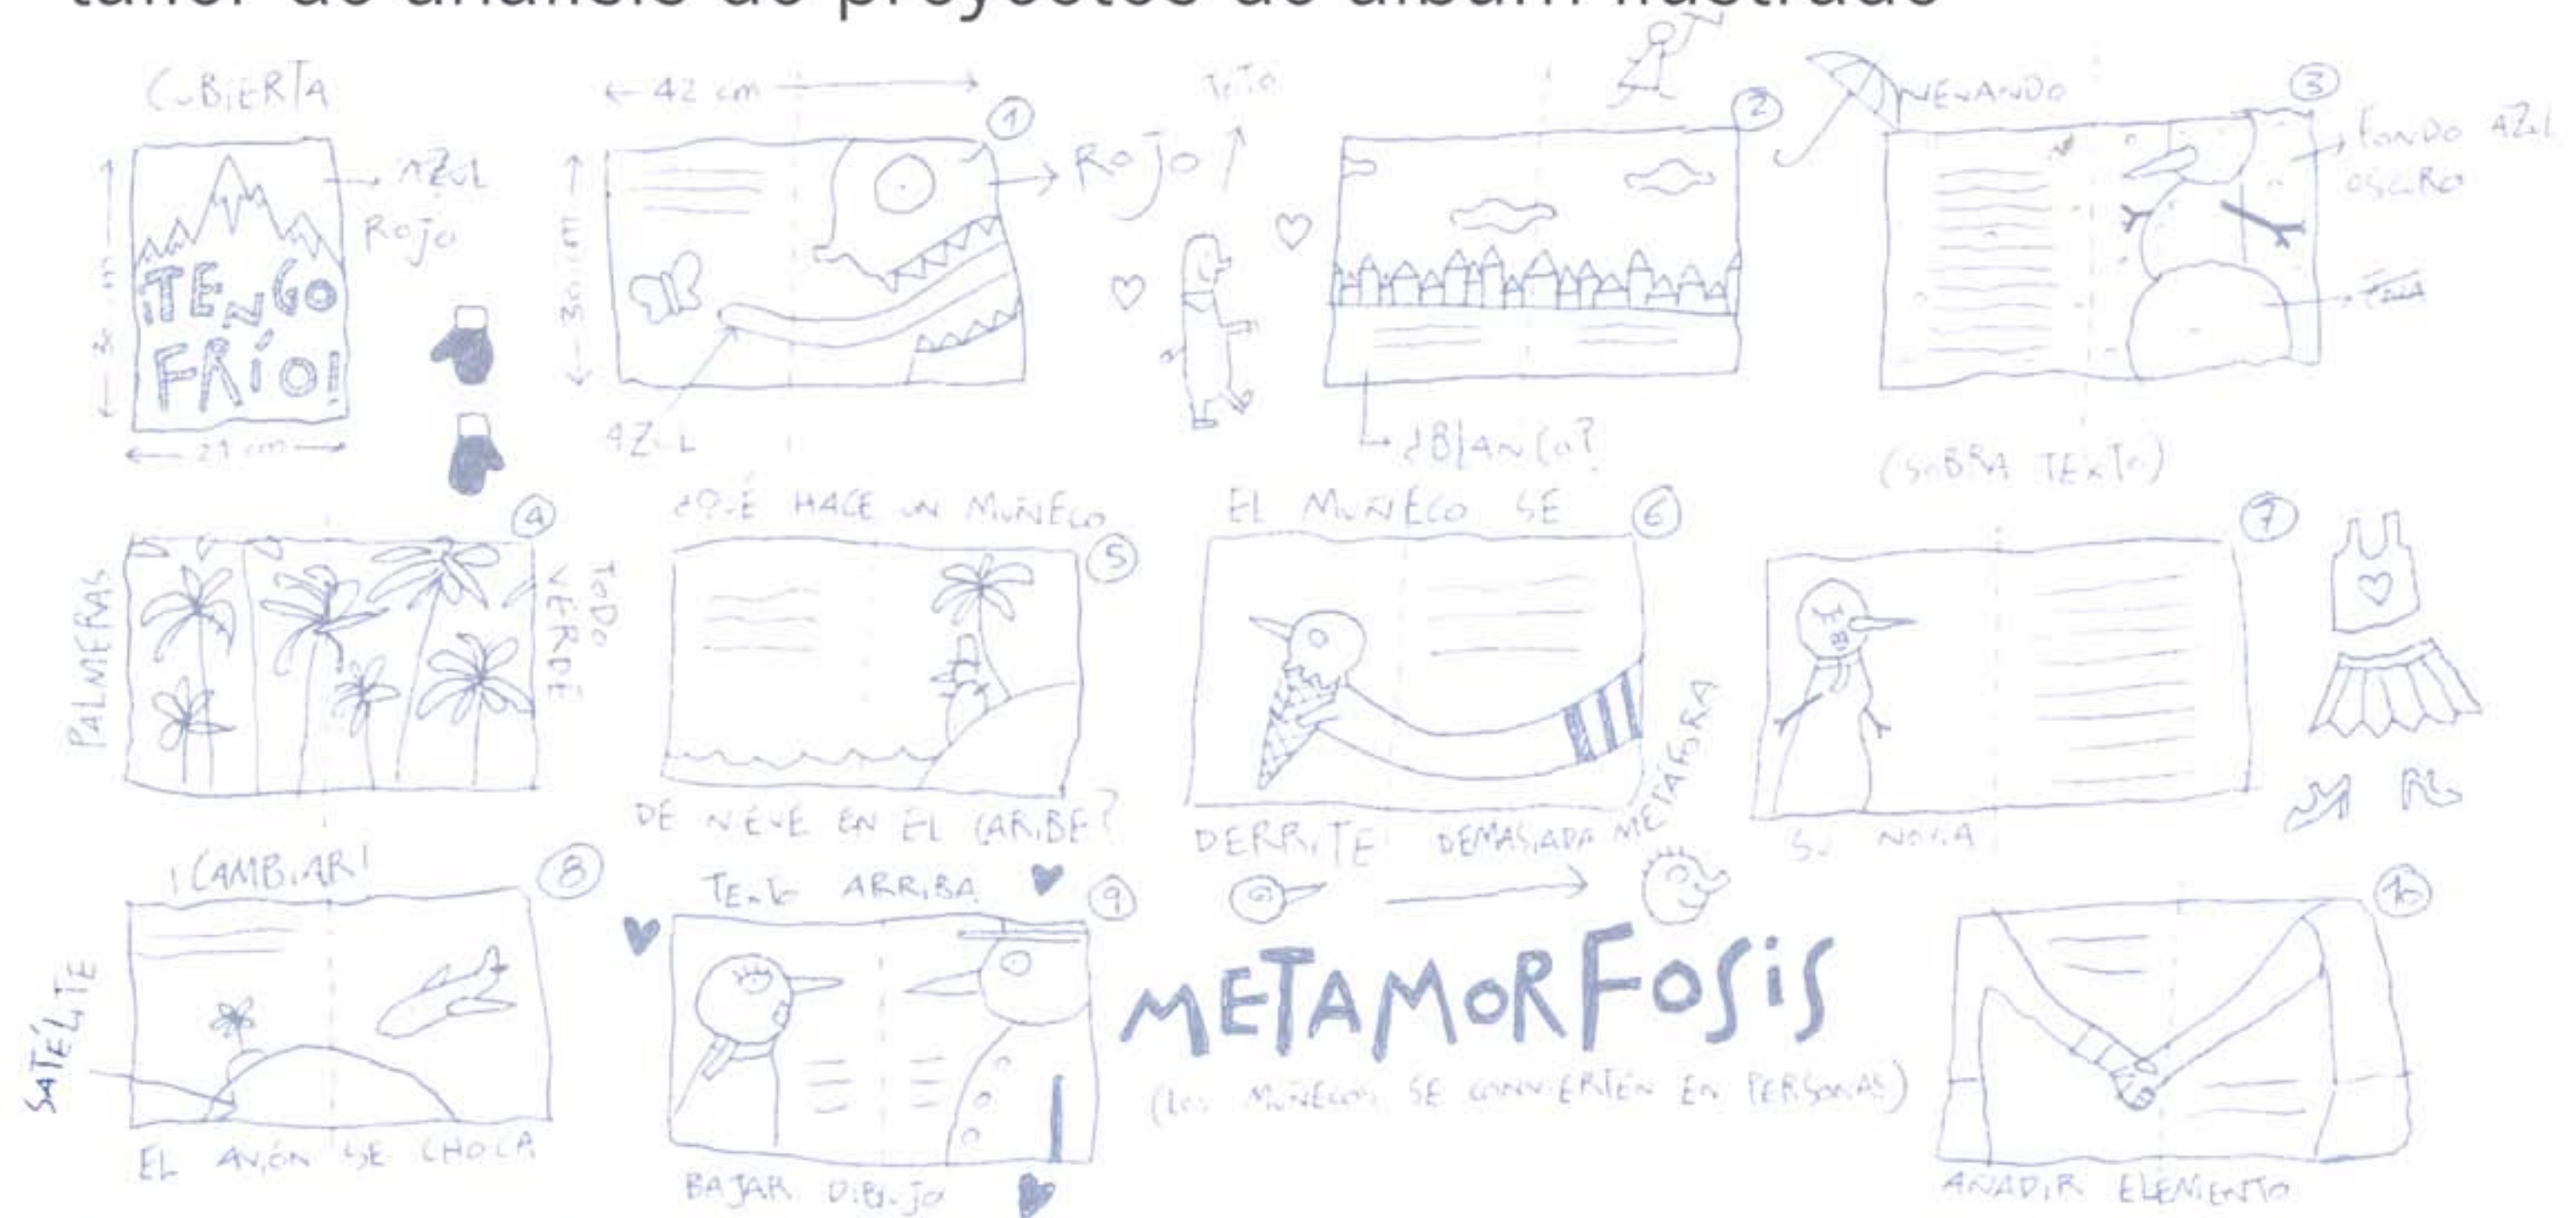 taller de análisis de proyectos de álbum ilustrado
CUBIERTA
AZUL
ROJO
¡TENGO
FRÍO!
21 cm
42 cm
30 cm
1
ROJO
AZUL
2
¿BLANCO?
NEVANDO
3
FONDO AZUL
OSCURO
(SOBRA TEXTO)
4
PALMERAS
TODO
VERDE
¿QUÉ HACE UN MUÑECO
5
DE NIEVE EN EL CARIBE?
EL MUÑECO SE
6
DERRITE
DEMASIADA METÁFORA
7
SU NOVIA
¡CAMBIAR!
8
SATÉLITE
EL AVIÓN SE CHOCA
TEXTO ARRIBA
9
BAJAR DIBUJO
METAMORFOSIS
(LOS MUÑECOS SE CONVIERTEN EN PERSONAS)
10
AÑADIR ELEMENTO